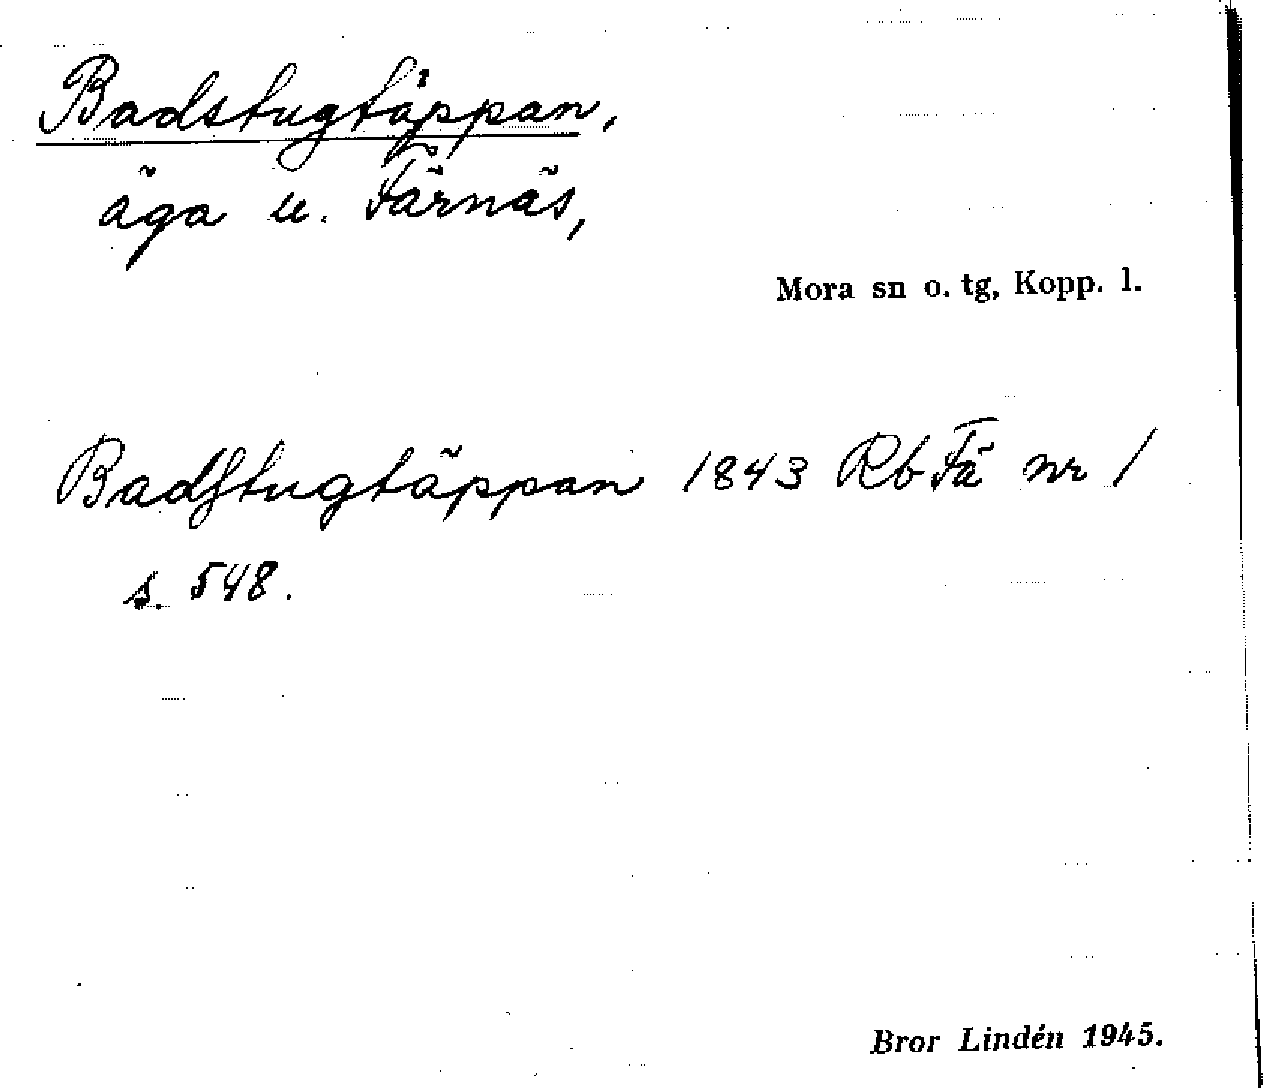 Badstugtäppan,
äga u. Färnäs,
Mora sn o. tg, Kopp. l.
Badstugtäppan 1843 Rb Fä nr 1
s. 548.
Bror Lindén 1945.